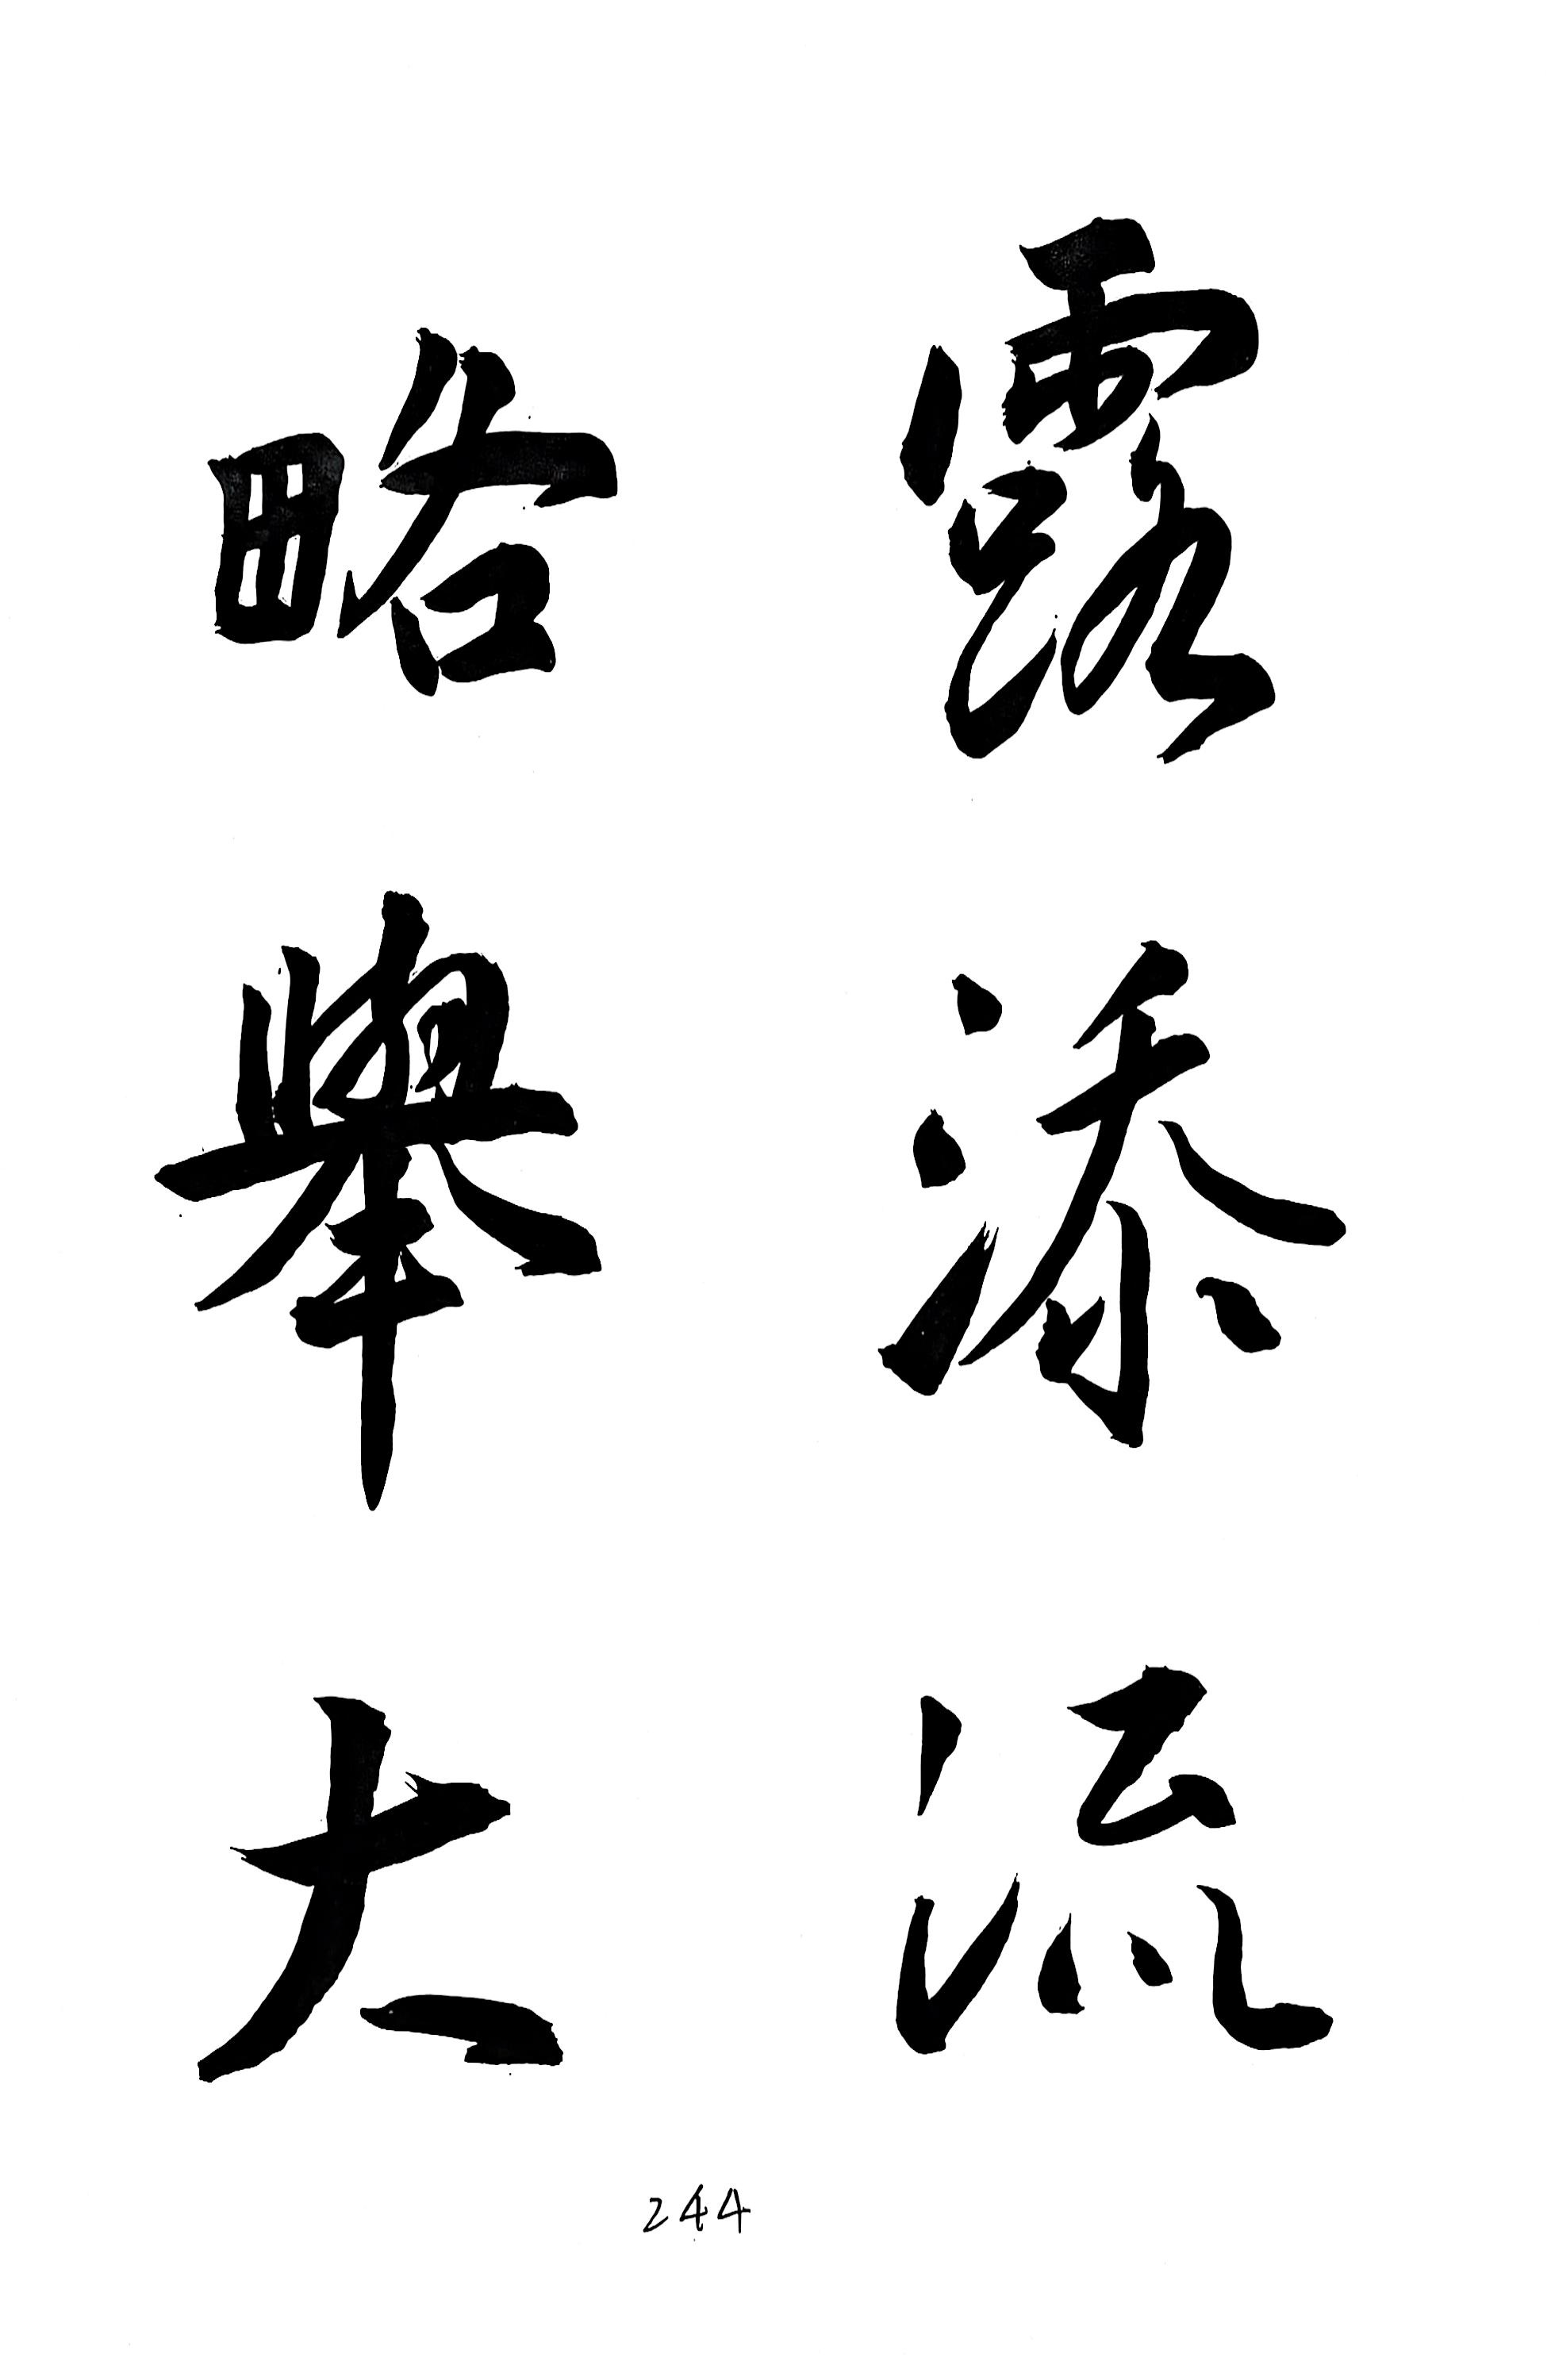 露添流
略舉大
244